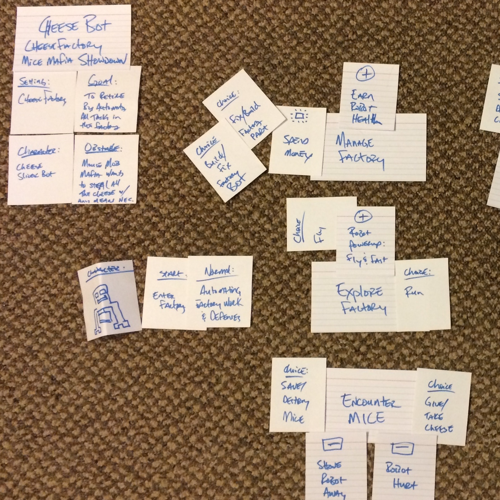 CHEESE BOT
CHEESE FACTORY
MICE MAFIA SHOWDOWN
SETTING:
CHEESE FACTORY
GOAL:
TO RETIRE
BY AUTOMATING
ALL TASKS IN
THE FACTORY
CHARACTER:
CHEESE
SLICER BOT
OBSTACLE:
MOUSE MOB
MAFIA WANTS
TO STEAL ALL
THE CHEESE W/
ANY MEANS NEC.
CHOICE:
FIX/BUILD
FACTORY
PART
CHOICE
BUILD/
FIX
FACTORY
BOT
SPEND
MONEY
+
EARN
ROBOT
HEALTH
MANAGE
FACTORY
CHOICE
FLY
+
ROBOT
POWERUP:
FLY & FAST
EXPLORE
FACTORY
CHOICE:
RUN
CHARACTER:
START:
ENTER
FACTORY
NORMAL:
AUTOMATING
FACTORY WORK
& DEFENSES
CHOICE:
SAVE/
DESTROY
MICE
ENCOUNTER
MICE
CHOICE
GIVE/
TAKE
CHEESE
-
ROBOT
AWAY
-
ROBOT
HURT